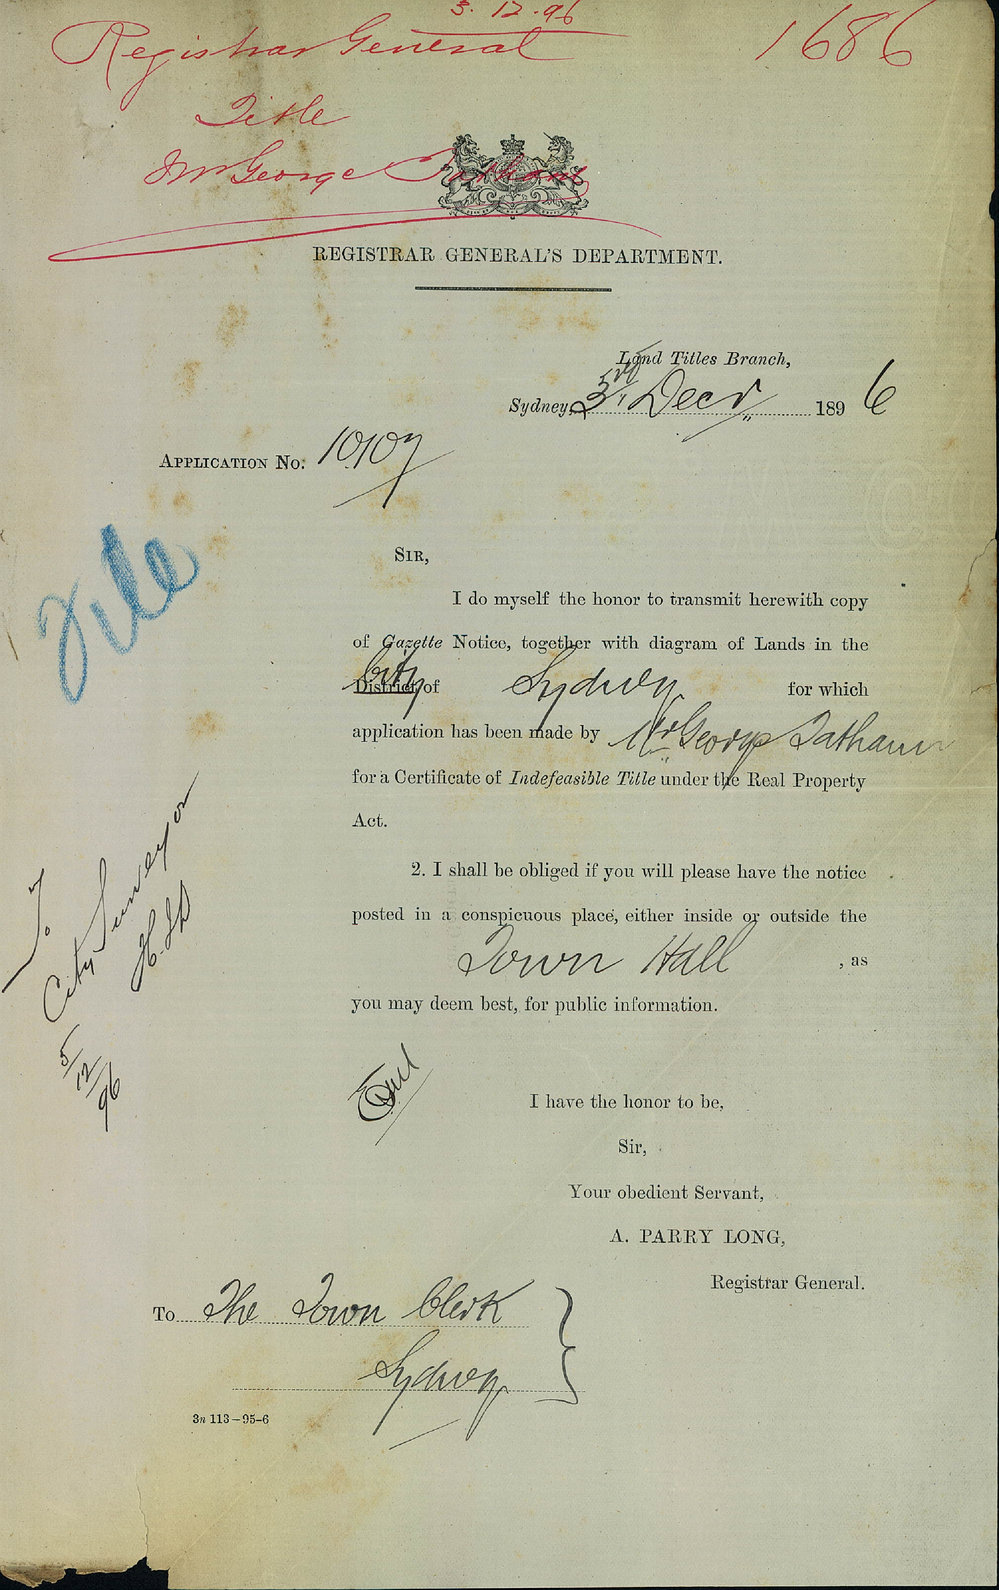 3.12.96
Registrar General
1686
Title
Mr George Tatham
REGISTRAR GENERAL'S DEPARTMENT.
Land Titles Branch,
Sydney, 3rd Decr 1896
APPLICATION No. 10107
File
SIR,
I do myself the honor to transmit herewith copy
of Gazette Notice, together with diagram of Lands in the
District City of Sydney for which
application has been made by Mr George Tatham
for a Certificate of Indefeasible Title under the Real Property
Act.
2. I shall be obliged if you will please have the notice
posted in a conspicuous place, either inside or outside the
Town Hall, as
you may deem best, for public information.
To
City Surveyor
5/12/96
I have the honor to be,
Sir,
Your obedient Servant,
A. PARRY LONG,
Registrar General.
To The Town Clerk
Sydney
3n 113–95–6